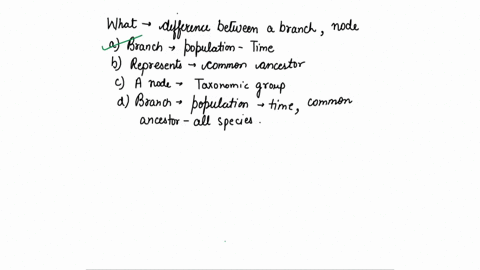 What → difference between a branch, node
a) Branch → population - Time
b) Represents → common ancestor
c) A node → Taxonomic group
d) Branch → population → time, common
ancestor - all species.